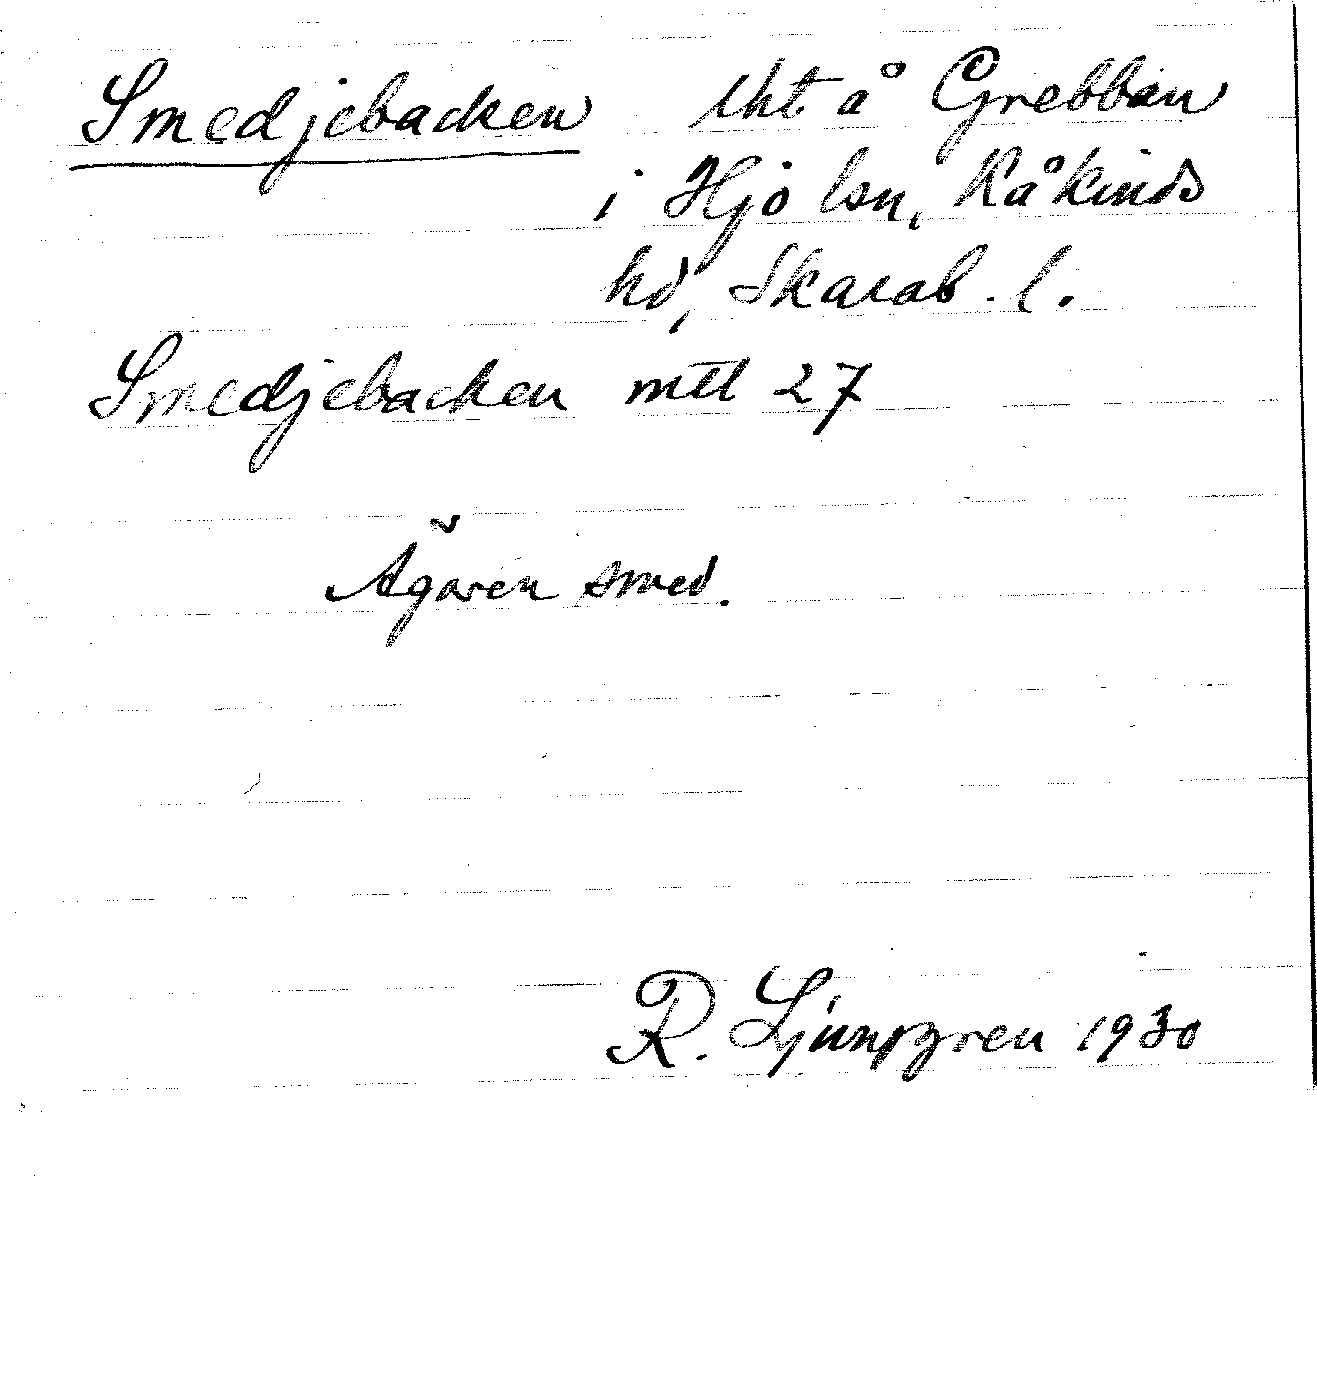 Smedjebacken lht å Grebban
i Hjo lsn, Kåkinds
hd, Skarab. l.
Smedjebacken mtl 27
Ägaren smed.
R. Ljunggren 1930